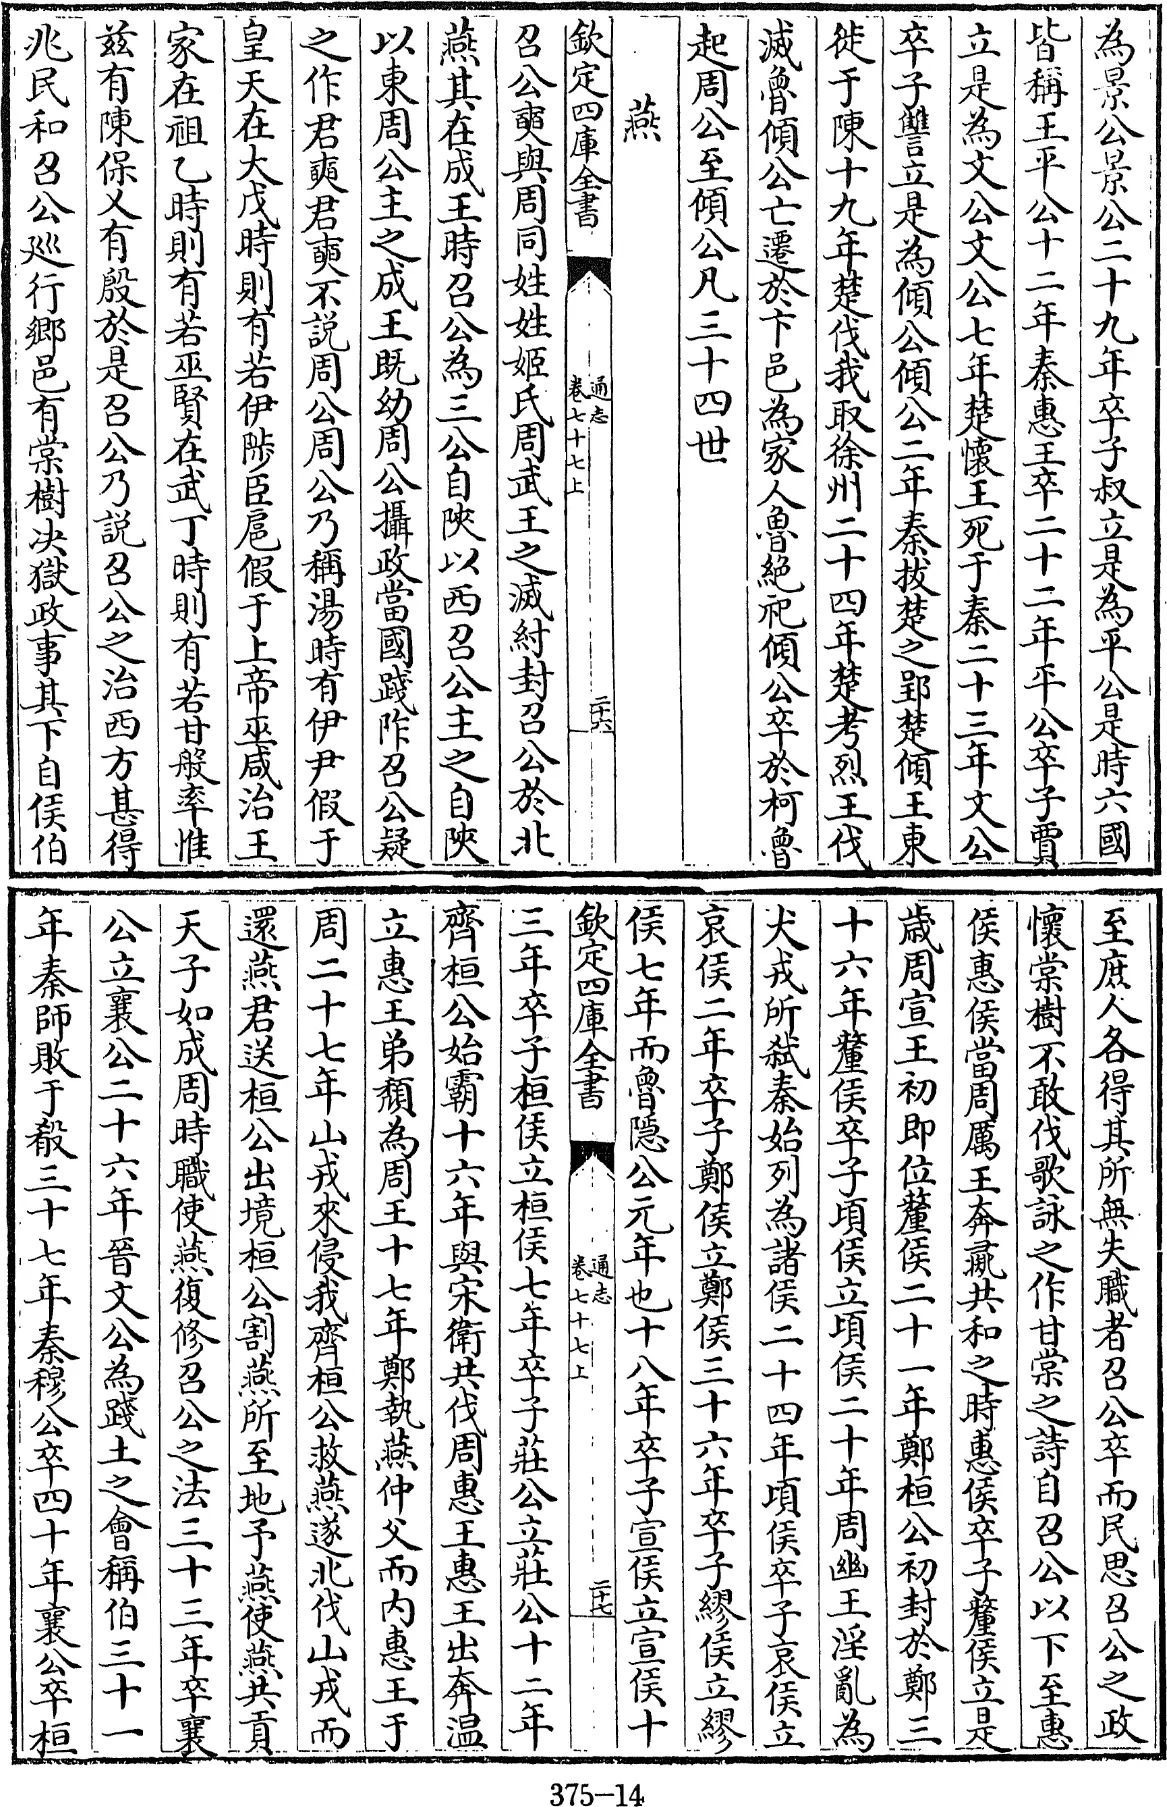 為景公景公二十九年卒子叔立是為平公是時六國
皆稱王平公十二年秦惠王卒二十二年平公卒子賈
立是為文公文公七年楚懷王死于秦二十三年文公
卒子讐立是為傾公傾公二年秦拔楚之郢楚傾王東
徙于陳十九年楚伐我取徐州二十四年楚考烈王伐
滅魯傾公亡遷於卞邑為家人魯絶祀傾公卒於柯魯
起周公至傾公凡三十四世
燕
欽定四庫全書
通志
卷七十七上
二十六
召公奭與周同姓姓姬氏周武王之滅紂封召公於北
燕其在成王時召公為三公自陜以西召公主之自陜
以東周公主之成王既幼周公攝政當國踐阼召公疑
之作君奭君奭不説周公周公乃稱湯時有伊尹假于
皇天在大戊時則有若伊陟臣扈假于上帝巫咸治王
家在祖乙時則有若巫賢在武丁時則有若甘般率惟
兹有陳保乂有殷於是召公乃説召公之治西方甚得
兆民和召公廵行鄉邑有棠樹决獄政事其下自侯伯
至庶人各得其所無失職者召公卒而民思召公之政
懷棠樹不敢伐歌詠之作甘棠之詩自召公以下至惠
侯惠侯當周厲王奔彘共和之時惠侯卒子釐侯立是
歳周宣王初即位釐侯二十一年鄭桓公初封於鄭三
十六年釐侯卒子頃侯立頃侯二十年周幽王淫亂為
犬戎所弑秦始列為諸侯二十四年頃侯卒子哀侯立
哀侯二年卒子鄭侯立鄭侯三十六年卒子繆侯立繆
侯七年而魯隱公元年也十八年卒子宣侯立宣侯十
欽定四庫全書
通志
卷七十七上
二十七
三年卒子桓侯立桓侯七年卒子莊公立莊公十二年
齊桓公始霸十六年與宋衛共伐周惠王惠王出奔温
立惠王弟頽為周王十七年鄭執燕仲父而内惠王于
周二十七年山戎來侵我齊桓公救燕遂北伐山戎而
還燕君送桓公出境桓公割燕所至地予燕使燕共貢
天子如成周時職使燕復修召公之法三十三年卒襄
公立襄公二十六年晉文公為踐土之會稱伯三十一
年秦師敗于殽三十七年秦穆公卒四十年襄公卒桓
375-14